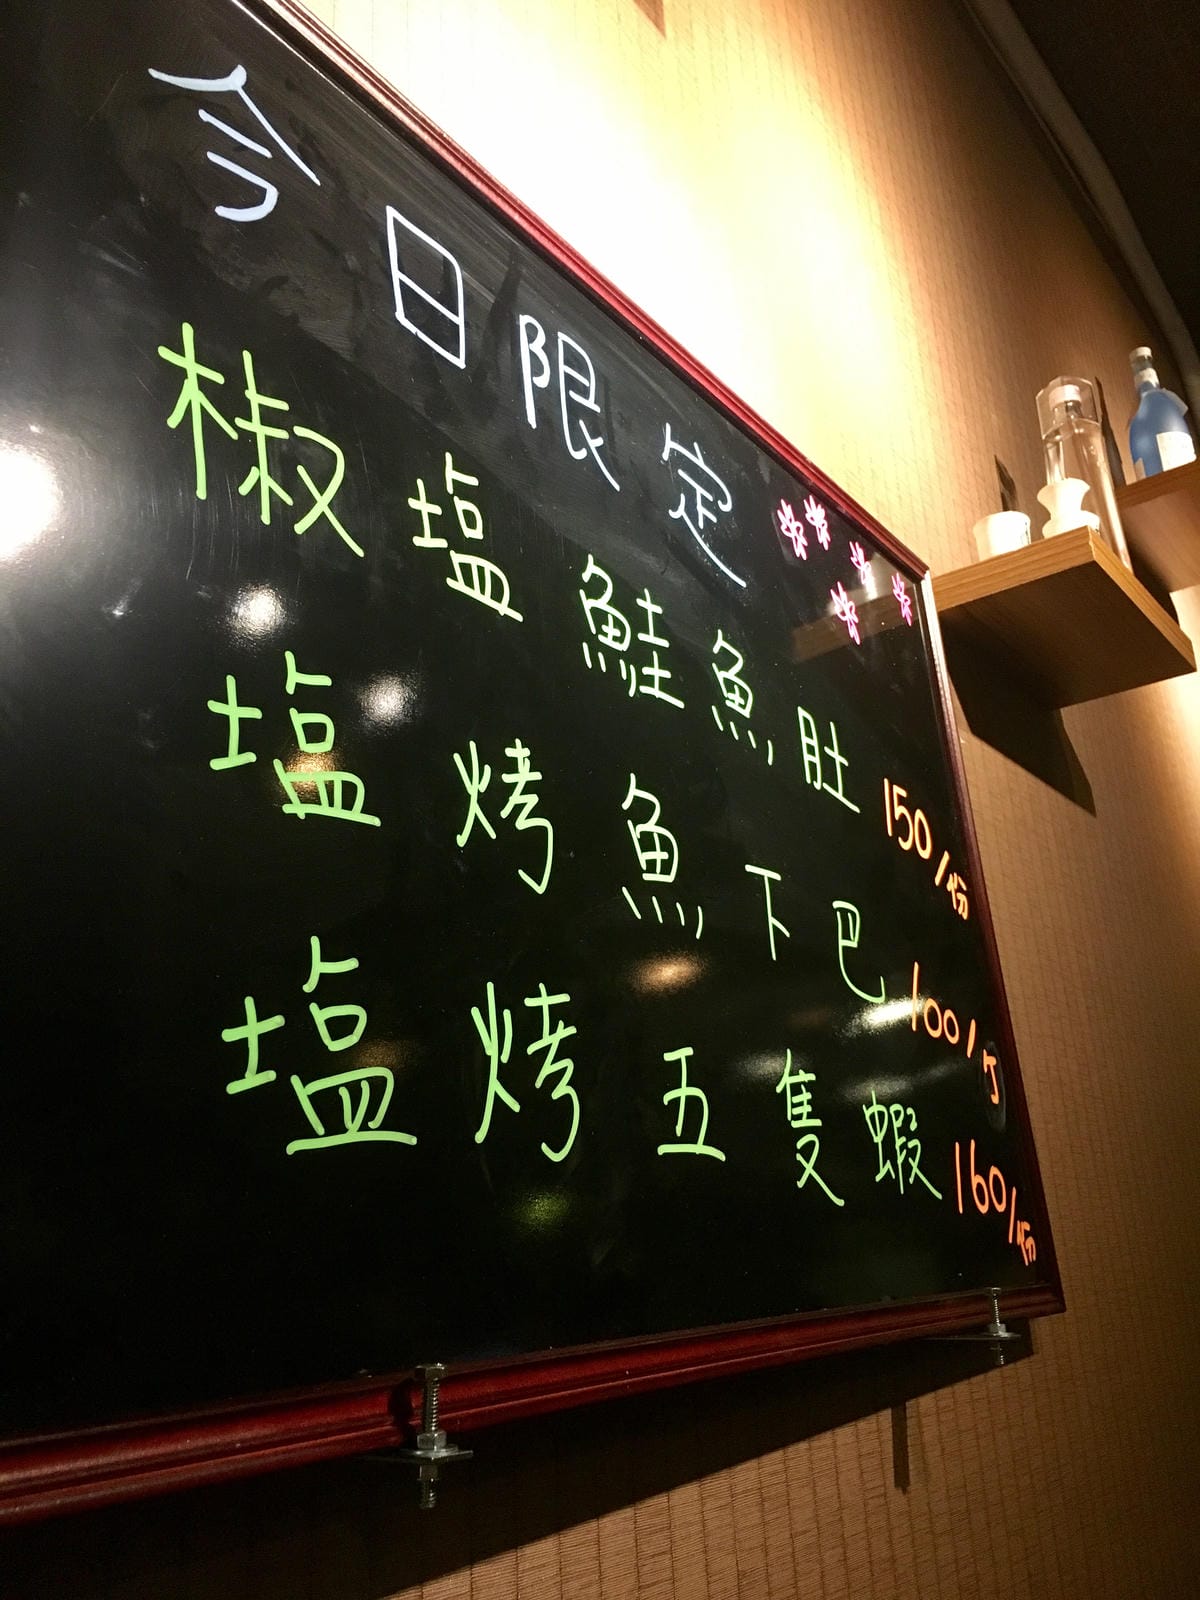 今日限定
椒塩鮭魚肚 150/份
塩烤魚下巴 100/
塩烤五隻蝦 160/份